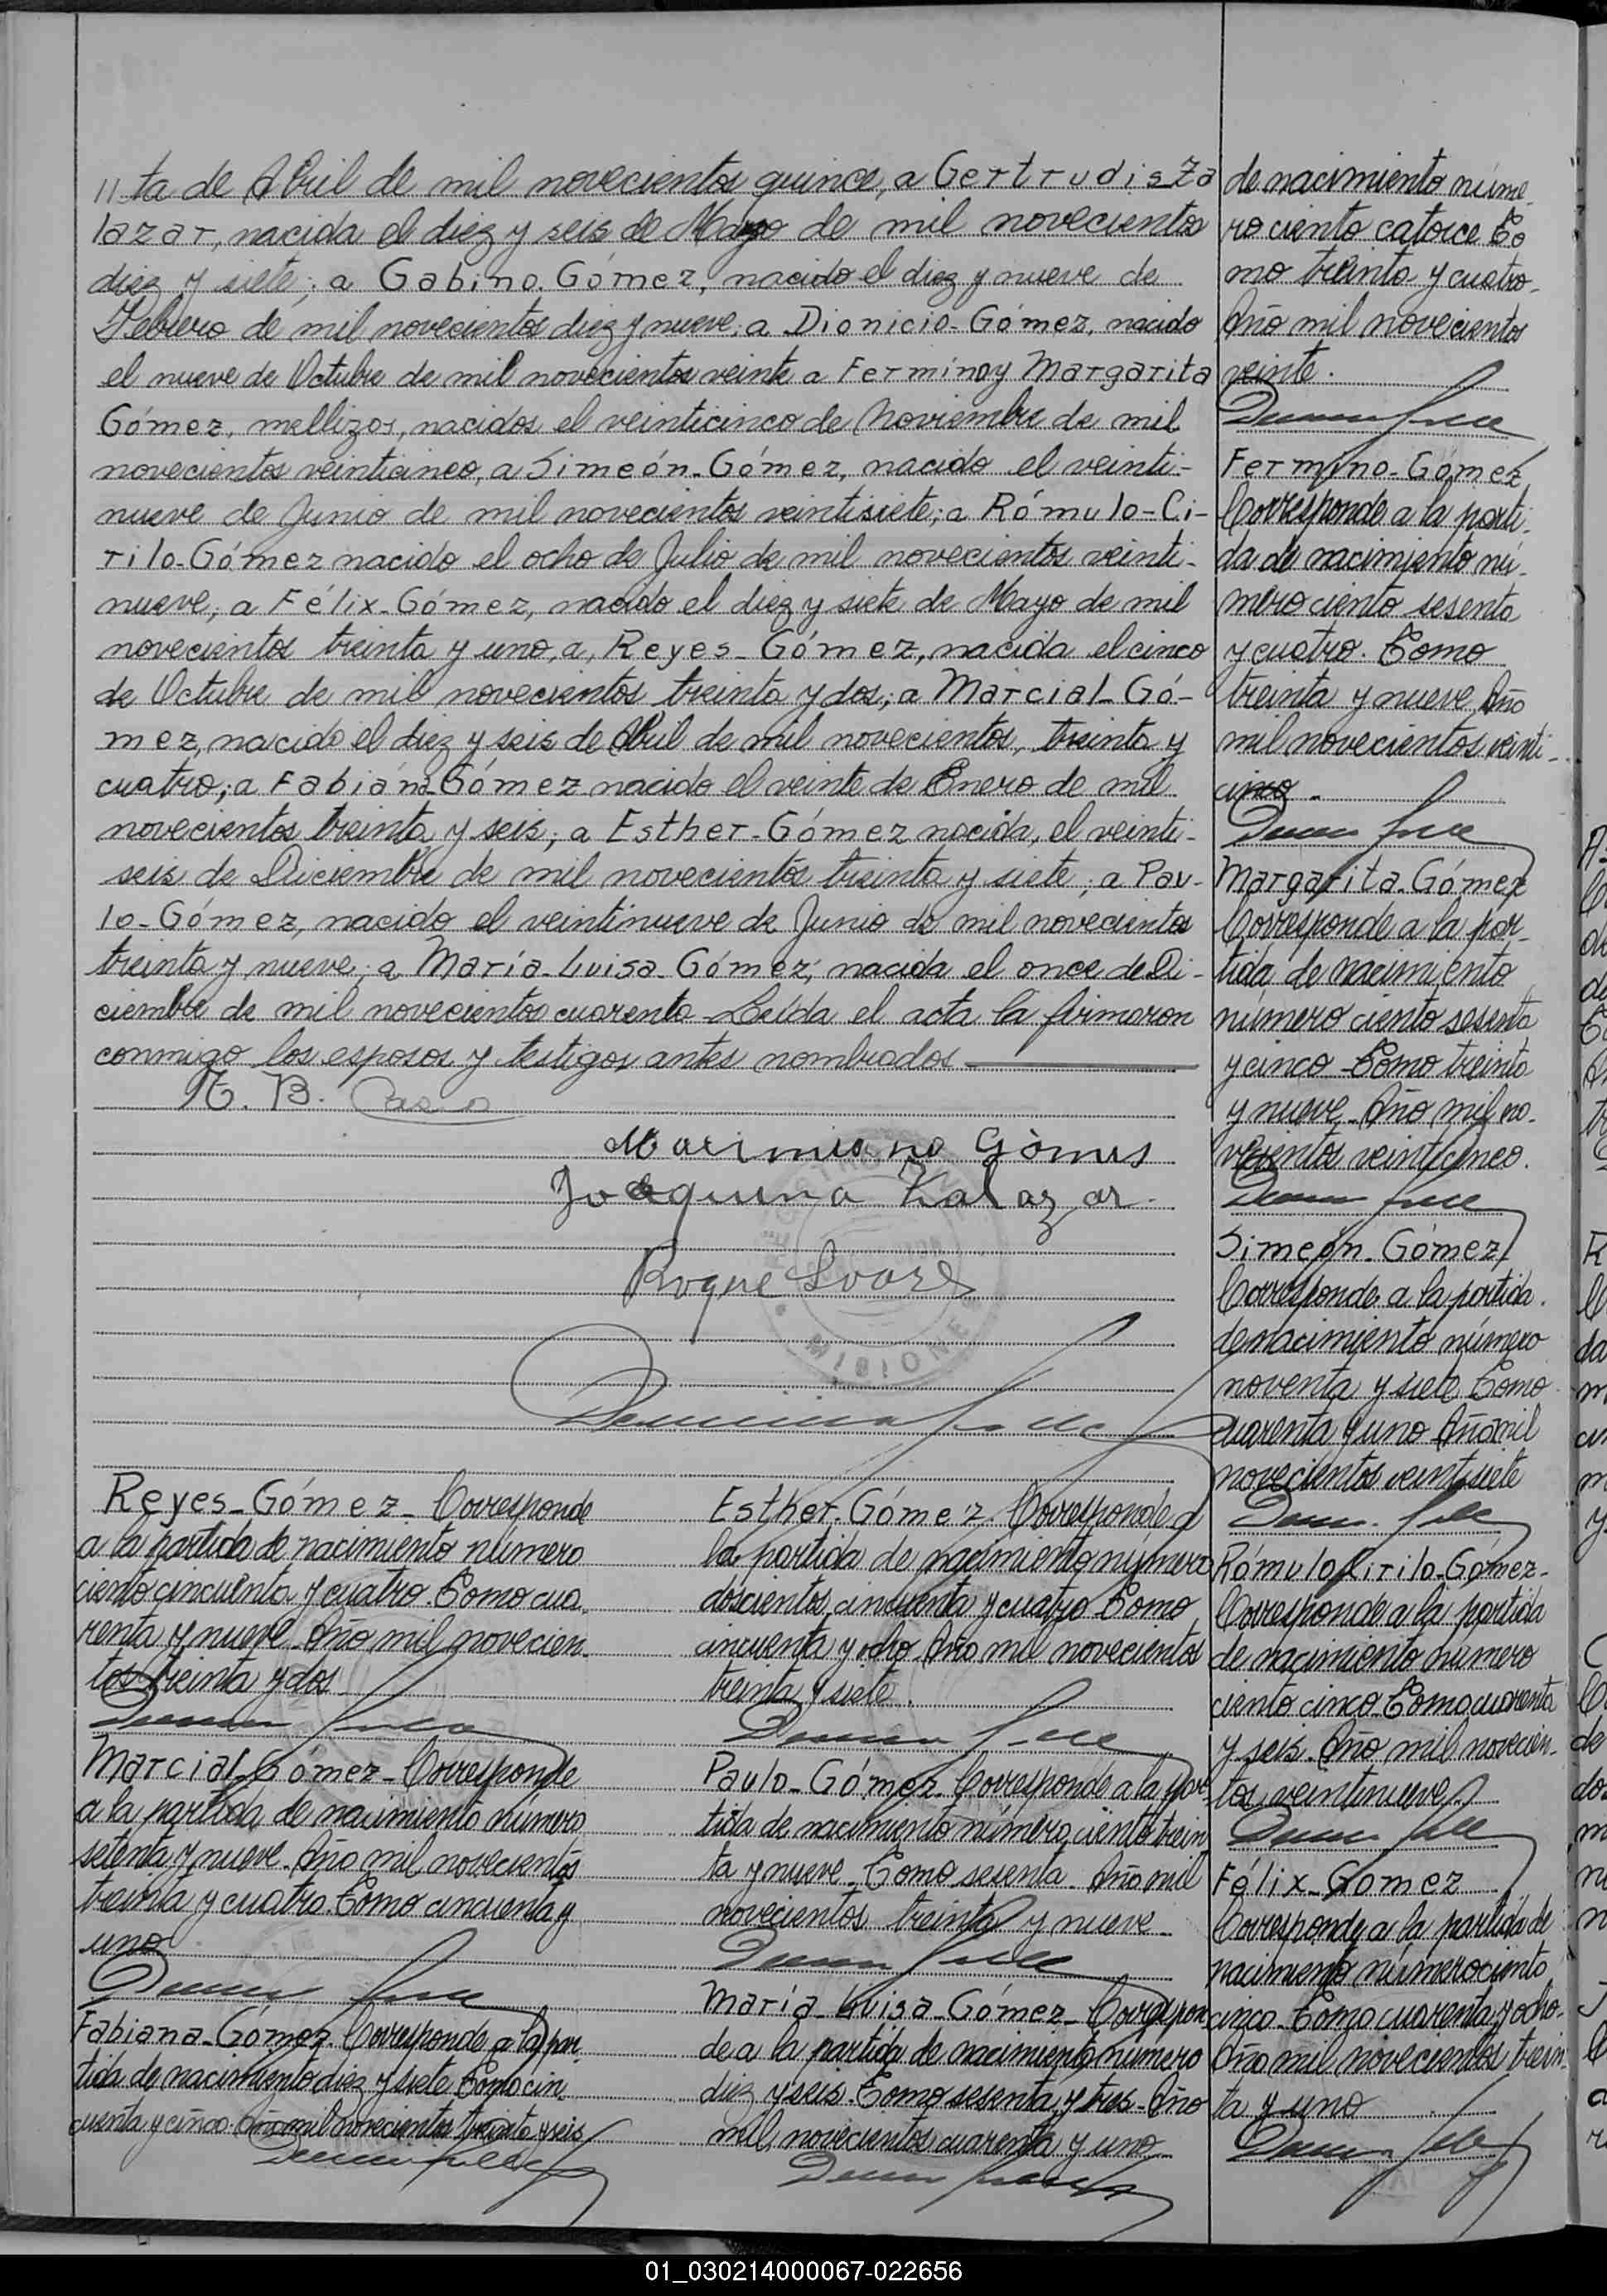 11 ta de Abril de mil novecientos quince, a Gertrudis Za
lazar, nacida el diez y seis de Mayo de mil novecientos
diez y siete; a Gabino Gómez, nacido el diez y nueve de
Febrero de mil novecientos diez y nueve; a Dionicio-Gómez, nacido
el nueve de Octubre de mil novecientos veinte a Fermin y Margarita
Gómez, mellizos, nacidos el veinticinco de Noviembre de mil
novecientos veinticinco, a Simeón-Gómez, nacido el veinti-
nueve de Junio de mil novecientos veintisiete; a Rómulo-Ci-
rilo-Gómez nacido el ocho de Julio de mil novecientos veinti-
nueve; a Félix-Gómez, nacido el diez y siete de Mayo de mil
novecientos treinta y uno, a, Reyes-Gómez, nacida el cinco
de Octubre de mil novecientos treinta y dos; a Marcial-Gó-
mez, nacido el diez y seis de Abril de mil novecientos, treinta y
cuatro; a Fabiana-Gómez nacido el veinte de Enero de mil
novecientos treinta y seis; a Esther-Gómez nacida, el veinti-
seis de Diciembre de mil novecientos treinta y siete; a Pau-
lo-Gómez, nacido el veintinueve de Junio de mil novecientos
treinta y nueve; a María-Luisa-Gómez; nacida el once de Di-
ciembre de mil novecientos cuarenta-Leída el acta la firmaron
conmigo los esposos y testigos antes nombrados
Maximiano Gómes
Joaquina Zalazar
Roque
MISIONES
Reyes-Gómez-Corresponde
a la partida de nacimiento número
ciento cincuenta y cuatro. Tomo cua-
renta y nueve-Año mil novecien-
tos treinta y dos
Marcial-Gómez-Corresponde
a la partida de nacimiento número
setenta y nueve. Año mil novecientos
treinta y cuatro. Tomo cincuenta y
uno
Fabiana-Gómez. Corresponde a la par-
tida de nacimiento diez y siete Tomo cin-
cuenta y cinco. Año mil novecientos treinta y seis
Esther-Gómez. Corresponde a
la partida de nacimiento número
doscientos cincuenta y cuatro Tomo
cincuenta y ocho Año mil novecientos
treinta y siete.
Paulo-Gómez. Corresponde a la par-
tida de nacimiento número ciento trein
ta y nueve-Tomo sesenta-Año mil
novecientos treinta y nueve
María-Luisa-Gómez-Correspon-
de a la partida de nacimiento número
diez y seis. Tomo sesenta y tres-Año
mil novecientos cuarenta y uno
de nacimiento núme-
ro ciento catorce To
mo treinta y cuatro-
Año mil novecientos
veinte.
Fermino-Gómez
Corresponde a la parti-
da de nacimiento nú-
mero ciento sesenta
y cuatro. Tomo
treinta y nueve, Año
mil novecientos veinti-
cinco
Margarita-Gómez
Corresponde a la par-
tida de nacimiento
número ciento sesenta
y cinco-Tomo treinta
y nueve-Año mil no-
vecientos veinticinco.
Simeón-Gómez
Corresponde a la partida
de nacimiento número
noventa y siete Tomo
cuarenta y uno Año mil
novecientos veintisiete
Rómulo Cirilo-Gómez-
Corresponde a la partida
de nacimiento número
ciento cinco-Tomo cuarenta
y seis-Año mil novecien-
tos veintinueve
Félix-Gomez
Corresponde a la partida de
nacimiento número ciento
cinco-Tomo cuarenta y ocho-
Año mil novecientos trein-
ta y uno
01_030214000067-022656